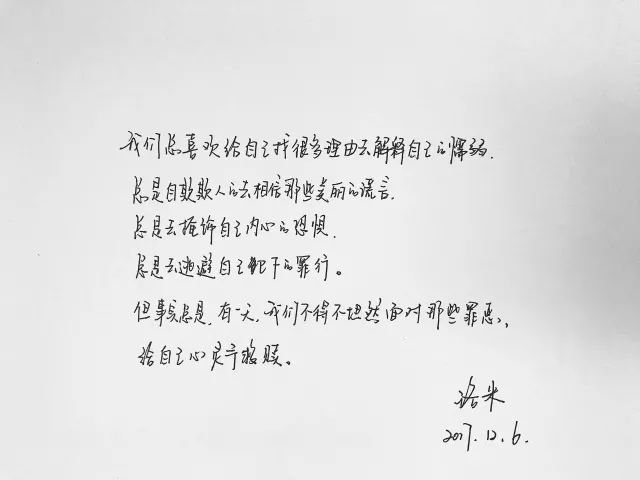 我们总喜欢给自己找很多理由去解释自己的懦弱.
总是自欺欺人的去相信那些美丽的谎言.
总是去掩饰自己内心的恐惧.
总是去逃避自己犯下的罪行。
但事实总是,有一天,我们不得不坦然面对那些罪恶,
给自己心灵予救赎。
洛米
2017.12.6.